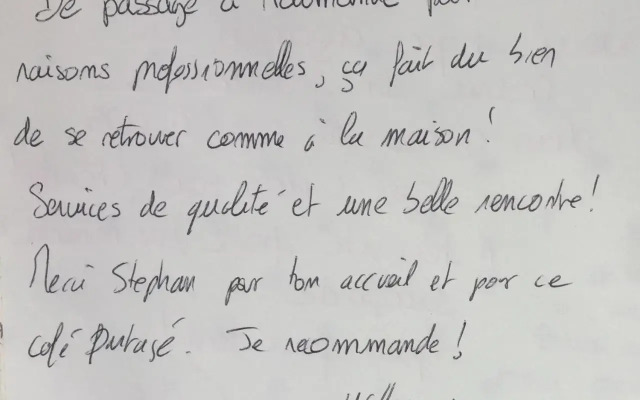 De passage à
raisons professionnelles, ça fait du bien
de se retrouver comme à la maison !
Services de qualité et une belle rencontre !
Merci Stephan pour ton accueil et pour ce
café partagé. Je recommande !